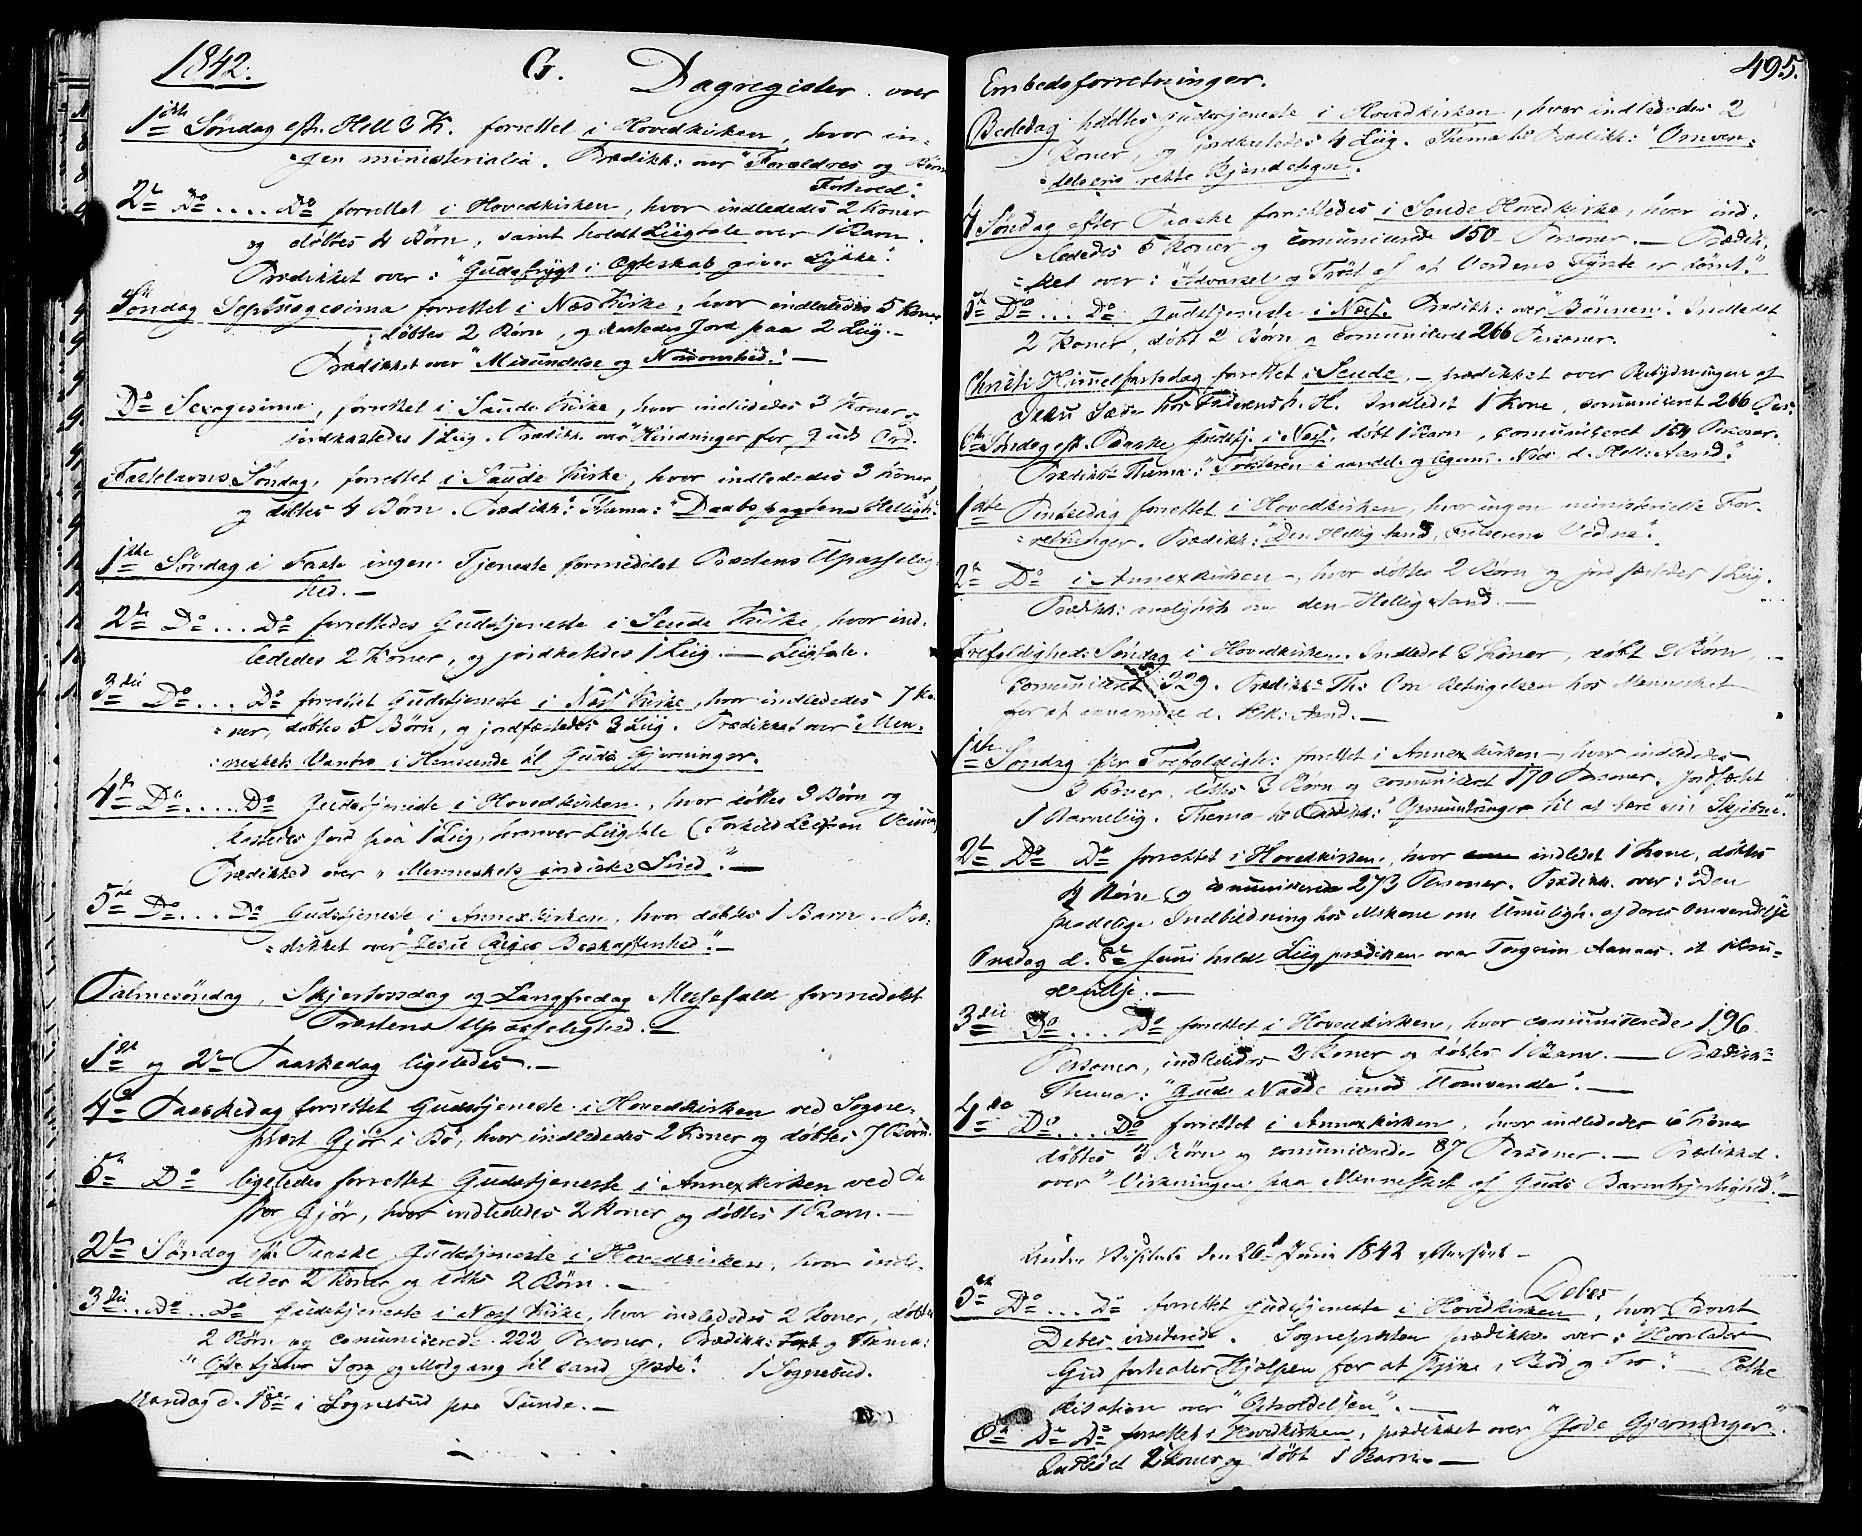 1842.
G. Dagregister over
1ste Søndag eft. Hell 3 K. forrettet i Hovedkirken, hvor in-
gen ministerialia. Prædikk: over "Forældres og Børns
Forhold".
2den Do .... Do forrettet i Hovedkirken, hvor indlededes 2 Koner
og døbtes 4 Børn, samt holdt Liigtale over 1 Barn.
Prædikket over: "Gudsfrygt i Ægteskab giver Lykke".
Søndag Septuagesima forrettet i Næs Kirke, hvor indlededes 5 Koner
døbtes 2 Børn, og kastedes Jord paa 2 Liig. -
Prædikket over "Misundelse og Nøisomhed." -
Do Sexagesima, forrettet i Saude Kirke, hvor indlededes 3 Koner og
jordkastedes 1 Liig. Prædikk. over "Hindringer for Guds Ord.
Fastelavns Søndag, forrettet i Saude Kirke, hvor indlededes 3 Koner,
og døbtes 4 Børn. Prædikk: Thema: "Daabspagtens Helligh:"
1ste Søndag i Faste ingen Tjeneste formedelst Præstens Upasselig-
hed. -
2den Do ... Do forrettedes Gudstjeneste i Seude Kirke, hvor ind-
lededes 2 Koner, og jordkastedes 1 Liig. - Liigtale.
3die Do ... Do forrettet Gudstjeneste i Næs Kirke, hvor indlededes 7 Ko-
ner, døbtes 5 Børn, og jordfæstedes 3 Liig. Prædikket over "Men-
neskets Vantro i Henseende til Guds Gjerninger.
4de Do ..... Do Gudstjeneste i Hovedkirken, hvor døbtes 3 Børn og
kastedes Jord paa 1 Liig, hvorover Liigtale (Torkild
Prædikked over "Menneskets jordiske Sind". -
5te Do ... Do Gudstjeneste i Annexkirken, hvor døbtes 1 Barn. Præ-
dikket over "Jesu Riges Beskaffenhed". -
Palmesøndag, Skjertorsdag og Langfredag Messefald formedelst
Præstens Upasselighed. -
1ste og 2den Paaskedag ligeledes. -
4de Paaskedag forrettet Gudstjeneste i Hovedkirken ved Sogne-
præst Gjør i Bø, hvor indlededes 2 Koner og døbtes 7 Børn.
5te Do ligeledes forrettet Gudstjeneste i Annexkirken ved Pa
stor Gjør, hvor indlededes 2 Koner og døbtes 1 Barn. -
2den Søndag eft. Paaske Gudstjeneste i Hovedkirken, hvor indle-
dedes 2 Koner og døbtes 2 Børn. -
3die .. Do .. Do Gudstjeneste i Næs Kirke, hvor indlededes 2 Koner, døbtes
2 Børn og comuniserede 222 Personer. Prædikk: Text og Thema:
"Ofte tjener Sorg og Modgang til sand Glæde". 1 Sognebud.
Mandag d. 18de i Sognebud paa Tunde. -
495.
Embedsforretninger.
Bededag holdtes Gudstjeneste i Hovedkirken, hvor indlededes 2
Koner, og jordkastedes 4 Liig. Thema til Prædikk: "Omven-
delsens rette Kjendetegn".
4 Søndag efter Paaske forrettedes i Seude Hovedkirke, hvor ind-
lededes 5 Koner og comunicerede 150 Personer. - Prædik-
ket over: "Advarsel og Trøst af at Verdens Fyrste er dømt."
5te Do ... Do Gudstjeneste i Næs. Prædikk: over "Bønnen". Indledet
2 Koner, døbt 2 Børn og comuniceret 266 Personer.
Christi Himmelfartsdag forrettet i Seude. - prædikket over Betydningen af
Jesu Sæde hos Faderens h. H. Indledet 1 Kone, comuniceret 266 Pers.
6te Søndag eft. Paaske Gudstj. i Næs, døbt 1 Barn, comuniceret 154 Personer.
Prædik: Thema: "Trøsteren i aandel. og legeml. Nød d. Hell: Aand".
1ste Pintsedag forrettet i Hovedkirken, hvor ingen ministerielle For-
retninger. Prædikk: "Den Hellig Aand, Frelserens Vidne".
2den Do i Annexkirken, hvor døbtes 2 Børn og jordfæstedes 1 Liig.
Prædikk: om den Hellig Aand. -
Trefoldigheds Søndag i Hovedkirken. Indledet 3 Koner, døbt 3 Børn, -
comuniceret 329. Prædikk: Th: Om Betingelsen hos Mennesket
for at annamme d. Hll: Aand. -
1ste Søndag efter Trefoldigh: forrettet i Annexkirken, hvor indlededes
3 Koner, døbtes 3 Børn og comuniceret 170 Personer, jordfæstet
1 Barneliig. Thema til Prædikk: "Opmuntringer til at bære sin Skjebne."
2den Do Do forrettet i Hovedkirken, hvor indledet 1 Kone, døbtes
4 Børn og comunicerede 273 Personer. Prædikk. over: "Den
skadelige Indbildning hos Mskene om Umuligh. af deres Omvendelse
Onsdag d. 8de Juni holdt Liigprædiken over Torgrim Aanaas.
3die Do ... Do forrettet i Hovedkirken, hvor comunicerede 196
Personer, indlededes 3 Koner og døbtes 1 Barn. - Prædik:
Thema: "Guds Naade imod Uomvendte". -
4de Do .... Do forrettet i Annexkirken, hvor indlededes 6 Koner
døbtes 3 Børn og comunicerede 87 Personer. - Prædikket
over "Virkningen paa Mennesket af Guds Barmhjertighed". -
Under Visitats den 26d Junii 1842 efterseet -
Debes
5te Do ... Do forrettet Gudstjeneste i Hovedkirken, hvor Provst
Debes visiterede. Sognepræsten prædikkede over: "Hvorledes
Gud forhaler Hjælpen for at styrke i Bøn og Tro". Cathe
kisation over "Gjenløsningen". -
6te Do Do forrettet i Hovedkirken, prædikket over "Gode Gjerninger".
Indledet 2 Koner og døbt 1 Barn. -